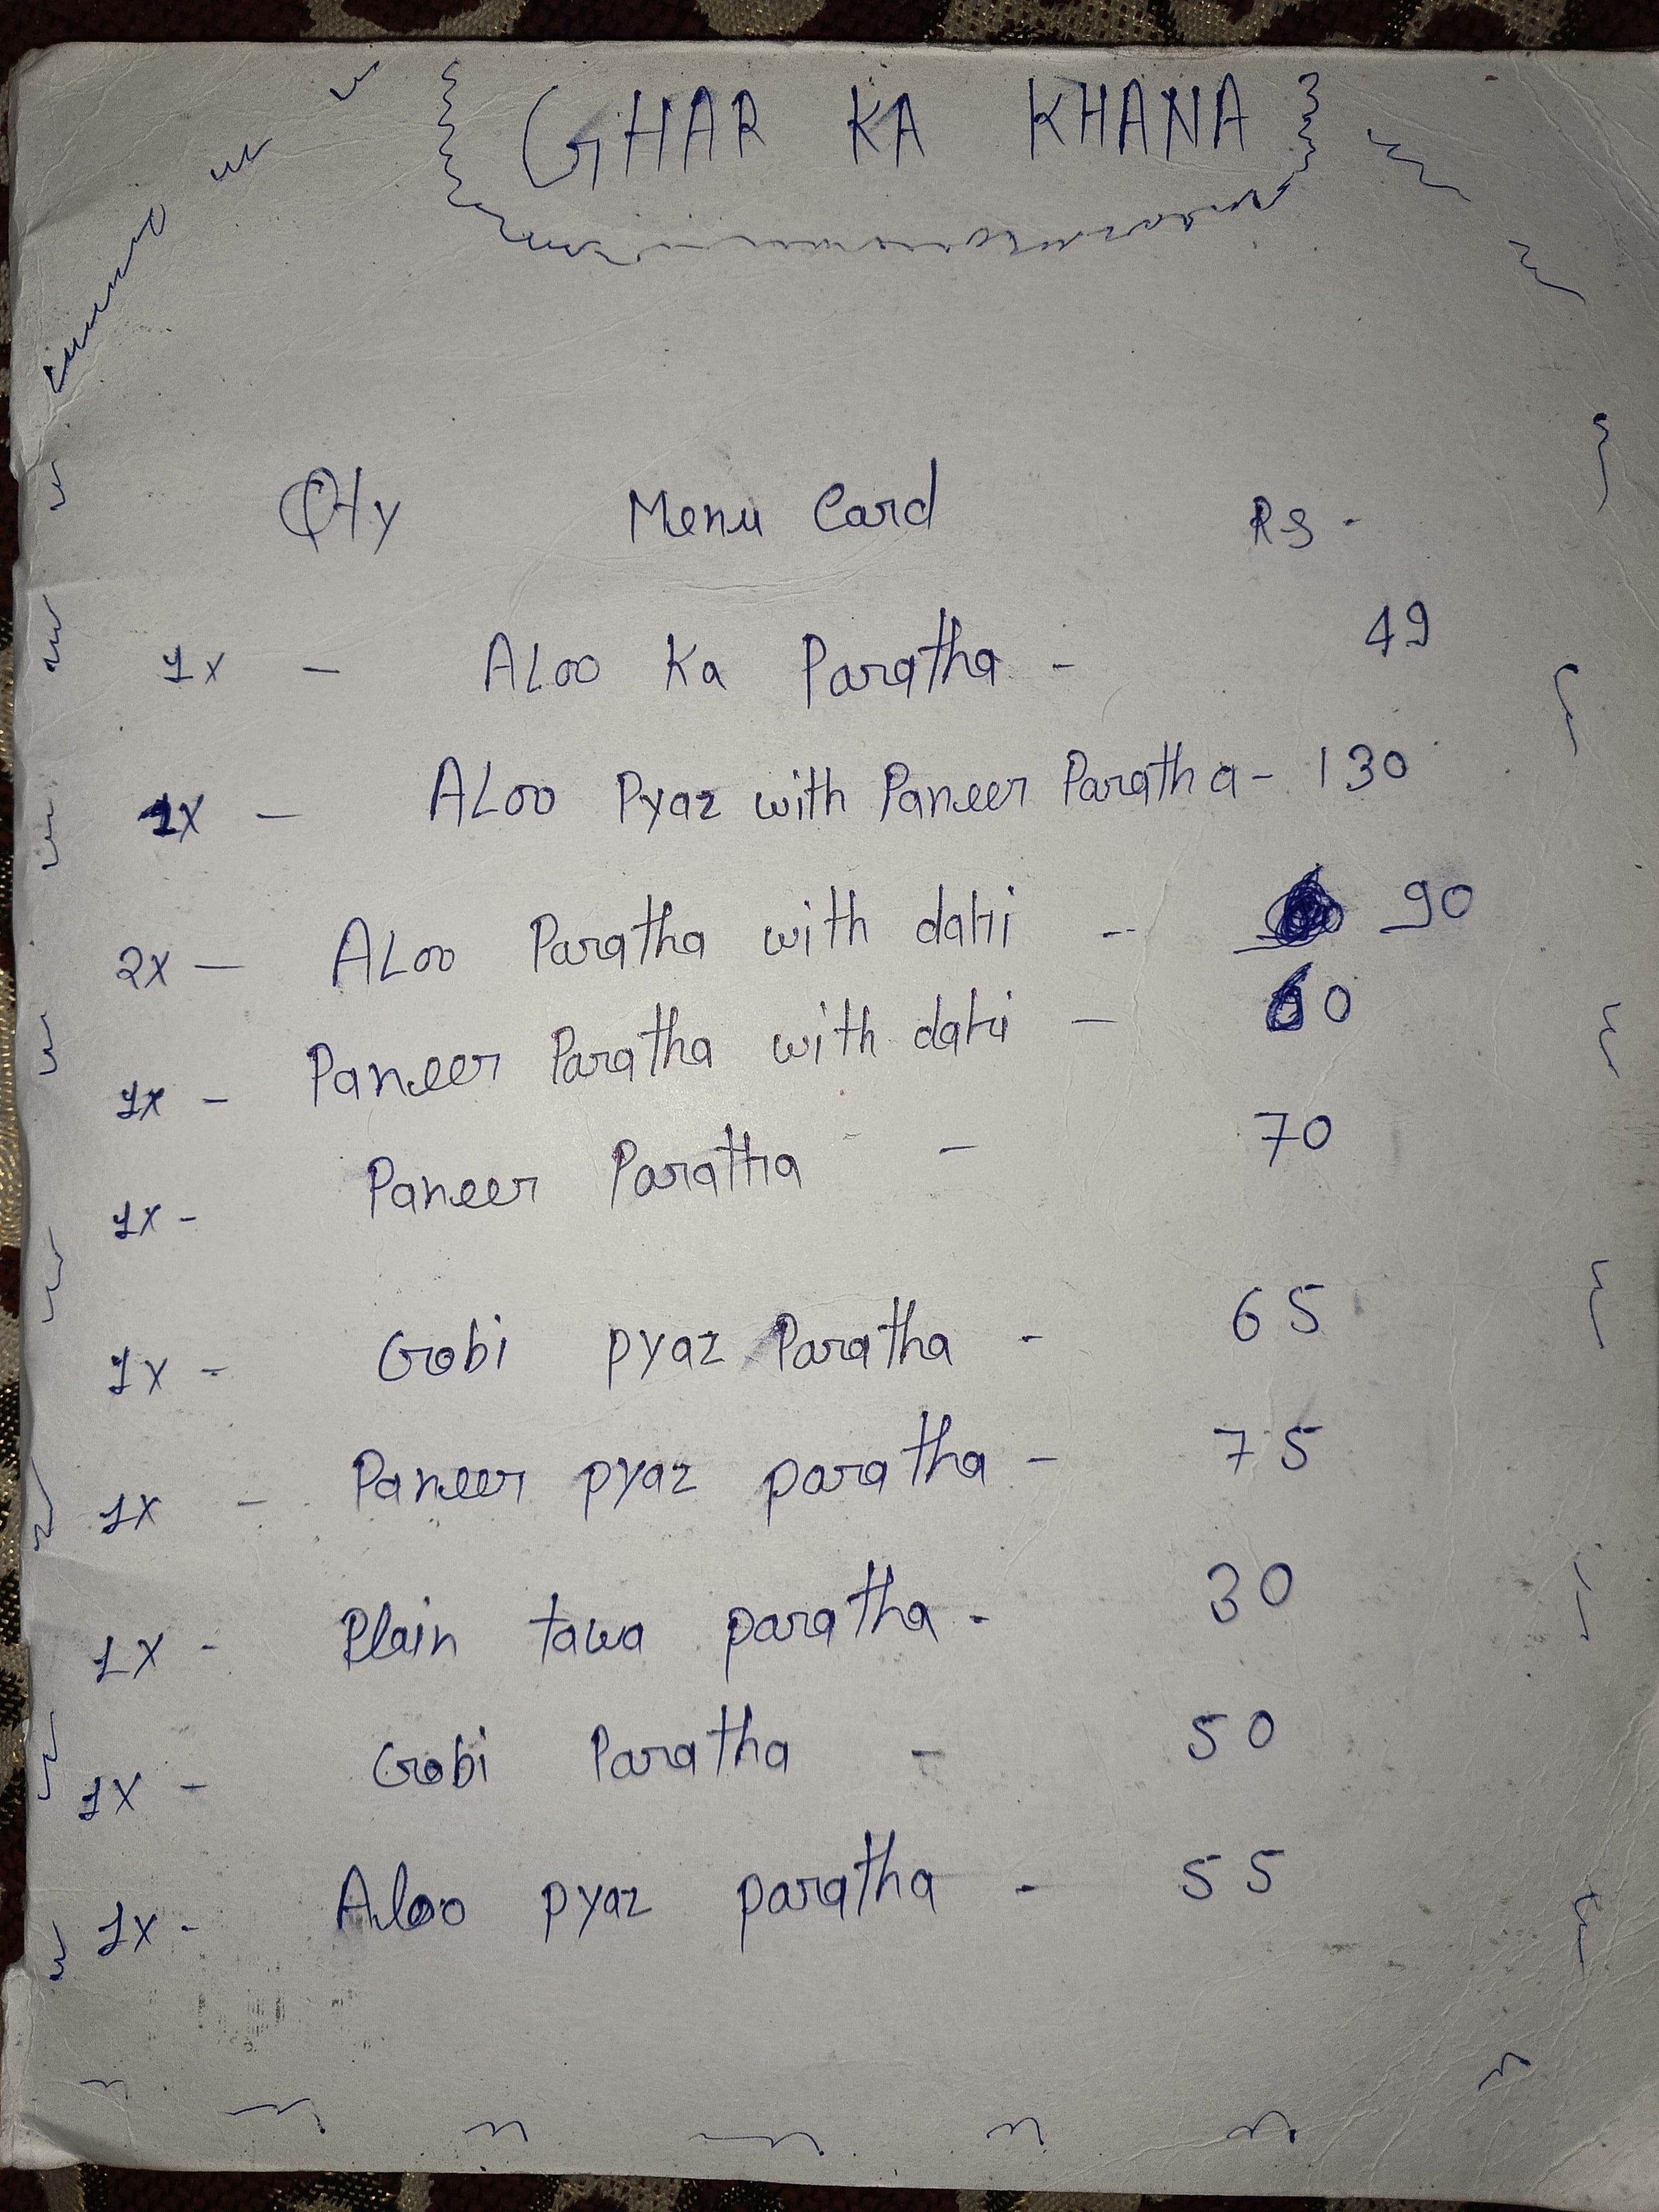 GHAR KA KHANA
Qty Menu Card RS -
1x - ALoo Ka Paratha - 49
1x - ALoo Pyaz with Paneer Paratha - 130
2x - ALoo Paratha with dahi -- 90
1x - Paneer Paratha with dahi - 60
1x - Paneer Paratha - 70
1x - Gobi pyaz Paratha - 65
1x - Paneer pyaz paratha - 75
1x - Plain tawa paratha - 30
1x - Gobi Paratha - 50
1x - Aloo pyaz paratha - 55